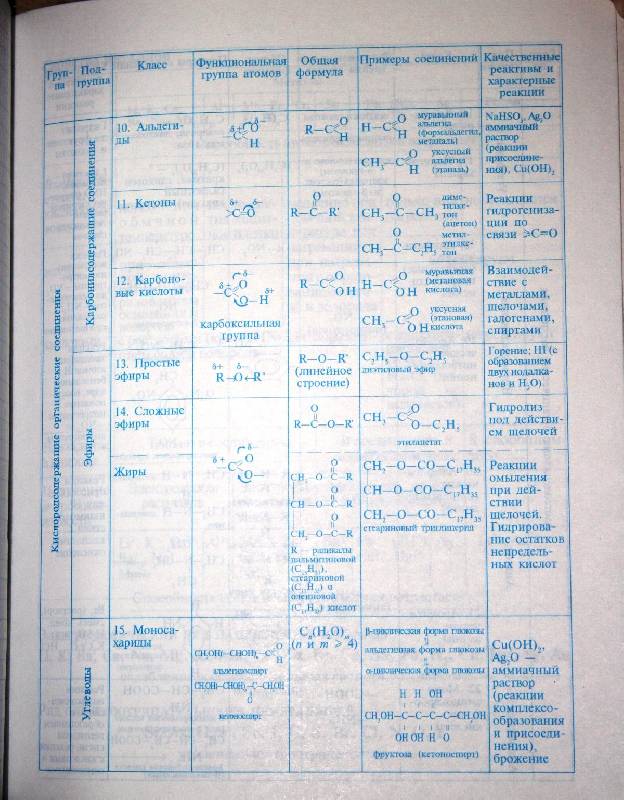 Груп-
па
Под-
группа
Класс
Функциональная
группа атомов
Общая
формула
Примеры соединений
Качественные
реактивы и
характерные
реакции
Кислородсодержащие органические соединения
Карбонилсодержащие соединения
10. Альдеги-
ды
δ+ δ–
–C O
H
R–C O
H
H–C O
H
муравьиный
альдегид
(формальдегид,
метаналь)
CH₃–C O
H
уксусный
альдегид
(этаналь)
NaHSO₃, Ag₂O
аммиачный
раствор
(реакции
присоедине-
ния), Cu(OH)₂
11. Кетоны
δ+ δ–
>C=O
O
R–C–R'
O
CH₃–C–CH₃
диме-
тилке-
тон
(ацетон)
O
CH₃–C–C₂H₅
метил-
этилке-
тон
Реакции
гидрогениза-
ции по
связи >C=O
12. Карбоно-
вые кислоты
δ–
–C O δ+
O–H
карбоксильная
группа
R–C O
OH
H–C O
OH
муравьиная
(метановая
кислота)
CH₃–C O
OH
уксусная
(этановая)
кислота
Взаимодей-
ствие с
металлами,
щелочами,
галогенами,
спиртами
Эфиры
13. Простые
эфиры
δ+ δ–
R→O←R'
R–O–R'
(линейное
строение)
C₂H₅–O–C₂H₅
диэтиловый эфир
Горение; HI (с
образованием
двух иодалка-
нов и H₂O).
14. Сложные
эфиры
O
R–C–O–R'
CH₃–C O
O–C₂H₅
этилацетат
Гидролиз
под действи-
ем щелочей
Жиры
δ+ δ–
–C O
O–
O
CH₂–O–C–R
O
CH–O–C–R
O
CH₂–O–C–R
R – радикалы
пальмитиновой
(C₁₅H₃₁),
стеариновой
(C₁₇H₃₅) и
олеиновой
(C₁₇H₃₃) кислот
CH₂–O–CO–C₁₇H₃₅
CH–O–CO–C₁₇H₃₅
CH₂–O–CO–C₁₇H₃₅
стеариновый триглицерид
Реакции
омыления
при дей-
ствии
щелочей.
Гидрирова-
ние остатков
непредель-
ных кислот
Углеводы
15. Моноса-
хариды
CH₂OH(–CHOH)ₙ–C O
H
альдегидоспирт
CH₂OH(–CHOH)ₙ–C–CH₂OH
O
кетоноспирт
Cₙ(H₂O)ₘ
(n и m ⩾ 4)
β-циклическая форма глюкозы
альдегидная форма глюкозы
α-циклическая форма глюкозы
H H OH
CH₂OH–C–C–C–C–CH₂OH
OH OH H O
фруктоза (кетоноспирт)
Cu(OH)₂,
Ag₂O —
аммиачный
раствор
(реакции
комплексо-
образования
и присоеди-
нения),
брожение